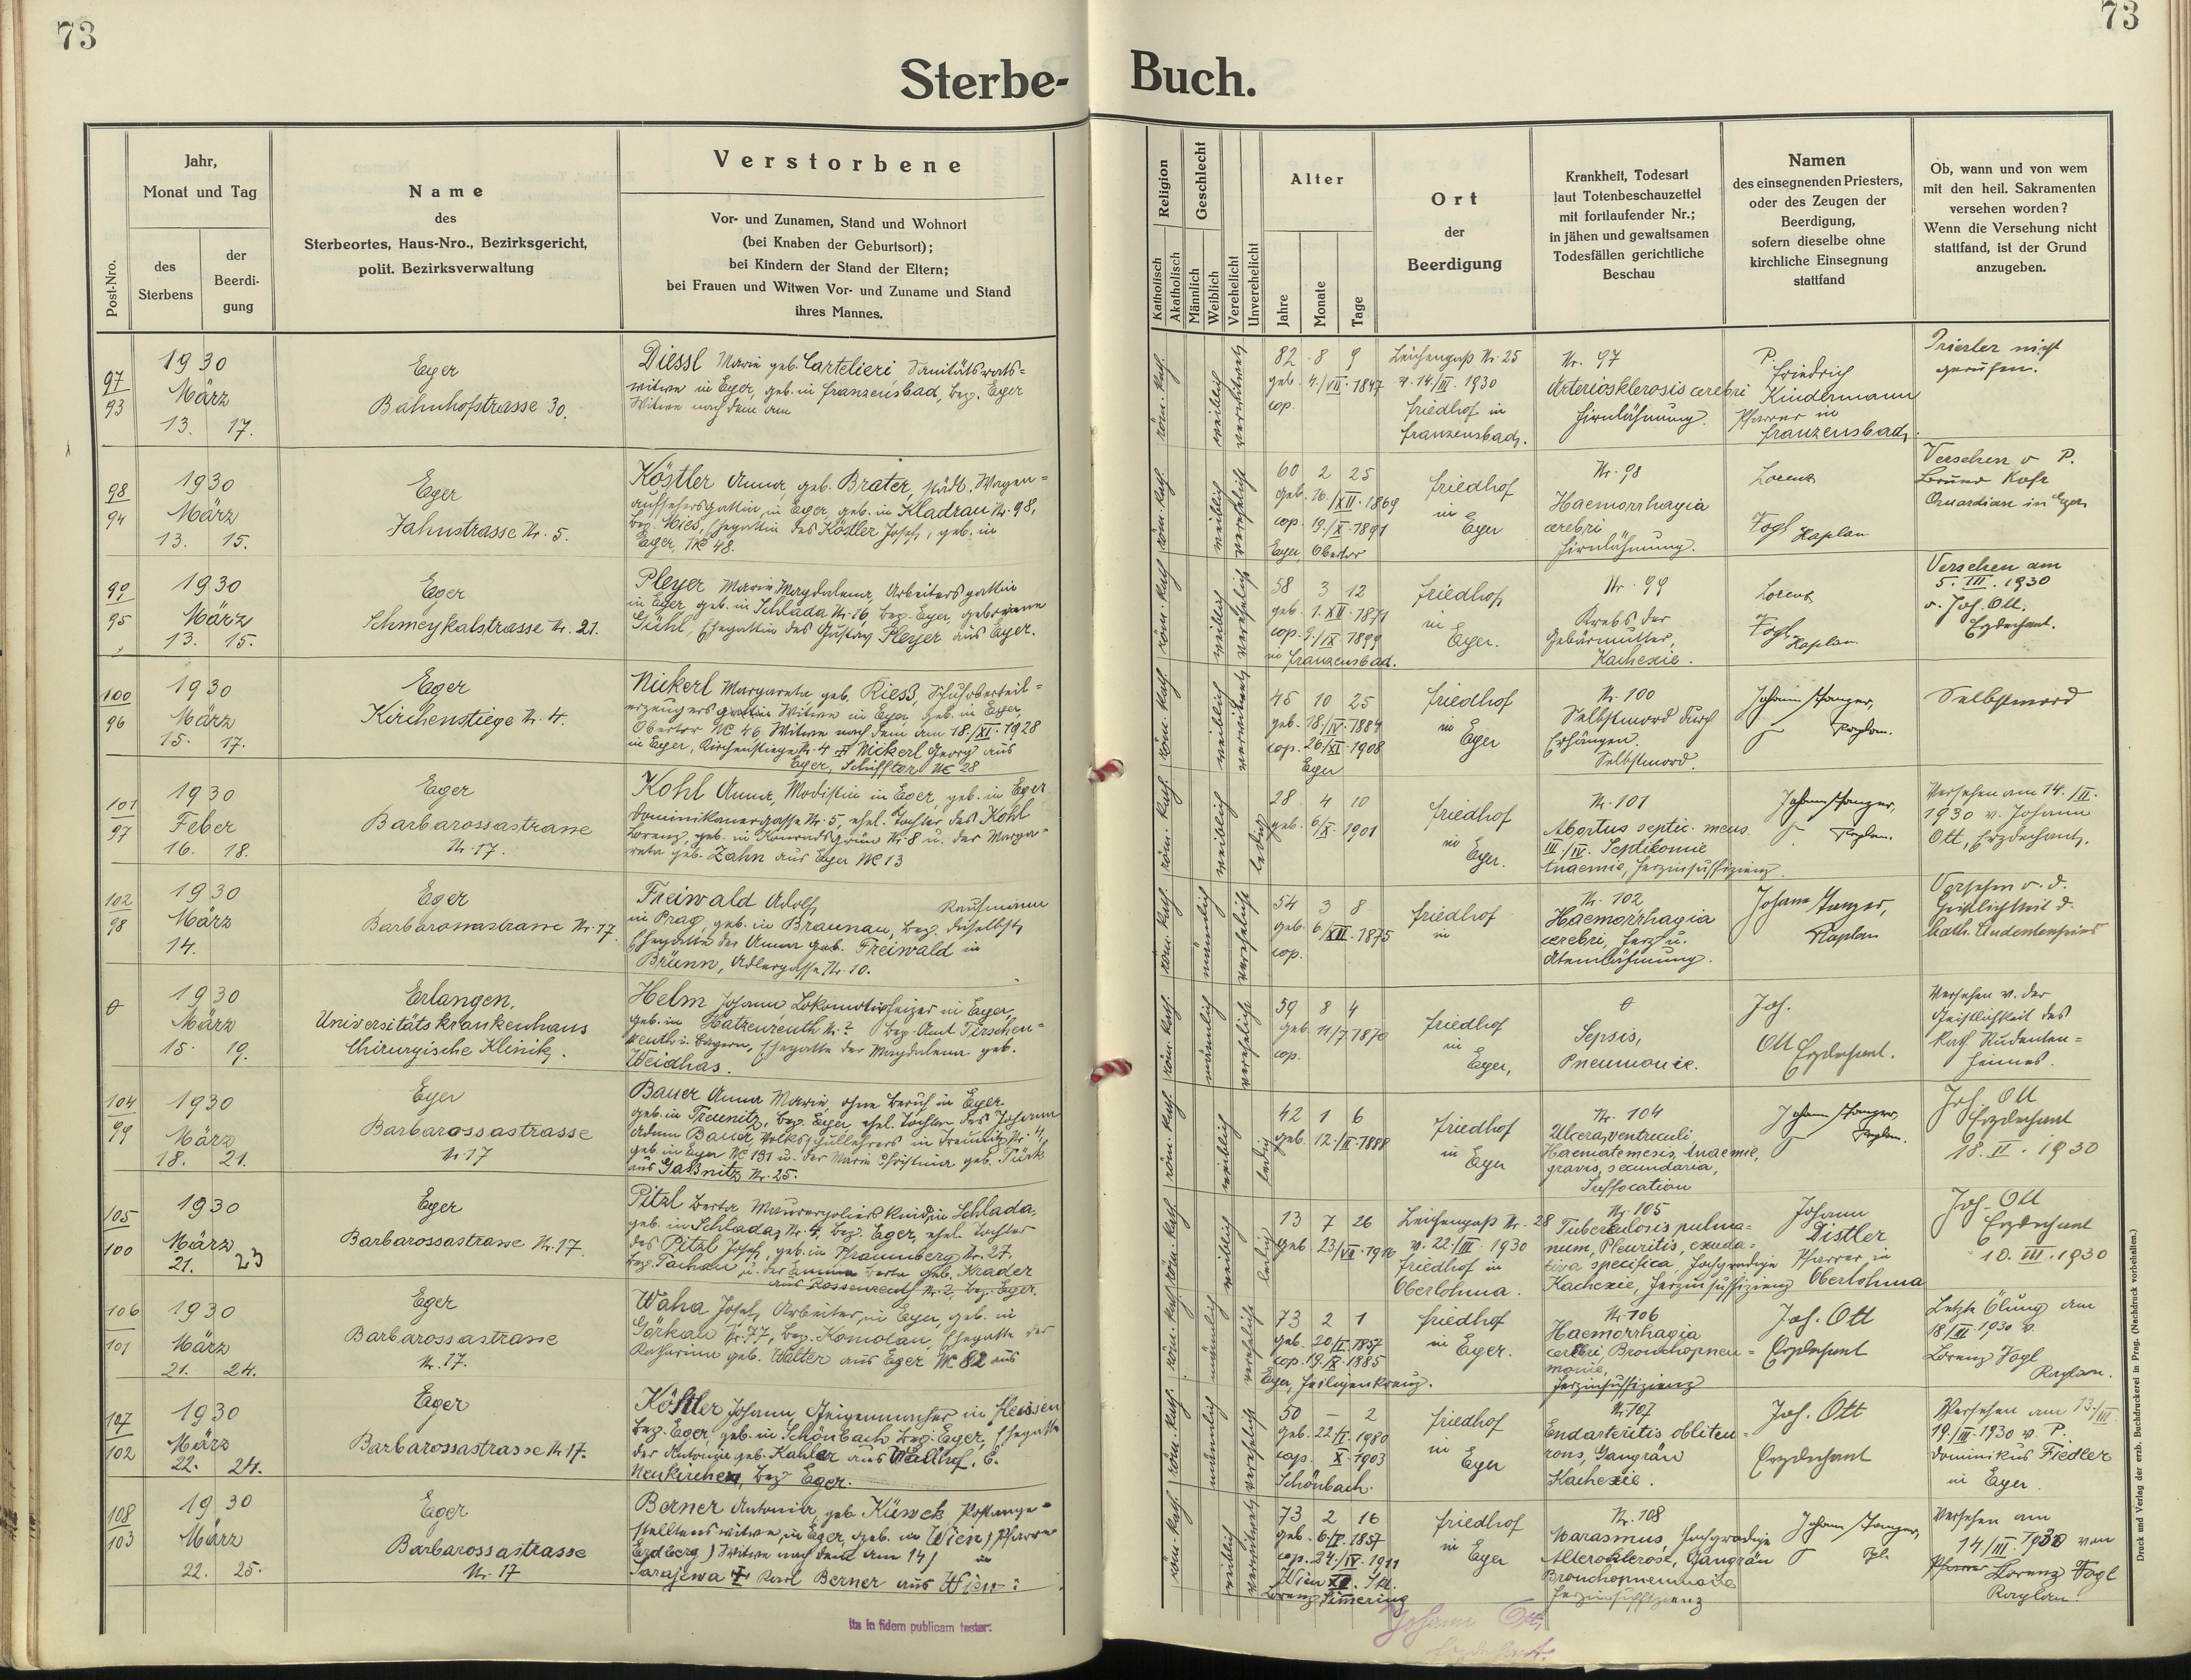 73
73
Sterbe-
Buch.
Post-Nro.
Jahr,
Monat und Tag
des
Sterbens
der
Beerdi-
gung
Name
des
Sterbeortes, Haus-Nro., Bezirksgericht,
polit. Bezirksverwaltung
Verstorbene
Vor- und Zunamen, Stand und Wohnort
(bei Knaben der Geburtsort);
bei Kindern der Stand der Eltern;
bei Frauen und Witwen Vor- und Zuname und Stand
ihres Mannes.
Religion
Katholisch
Akatholisch
Geschlecht
Männlich
Weiblich
Verehelicht
Unverehelicht
Alter
Jahre
Monate
Tage
Ort
der
Beerdigung
Krankheit, Todesart
laut Totenbeschauzettel
mit fortlaufender Nr.;
in jähen und gewaltsamen
Todesfällen gerichtliche
Beschau
Namen
des einsegnenden Priesters,
oder des Zeugen der
Beerdigung,
sofern dieselbe ohne
kirchliche Einsegnung
stattfand
Ob, wann und von wem
mit den heil. Sakramenten
versehen worden?
Wenn die Versehung nicht
stattfand, ist der Grund
anzugeben.
97
93
1930
März
13. 17.
Eger
Bahnhofstrasse 30.
Diessl Marie geb. Cartelieri Sanitätsrats=
witwe in Eger, geb. in Franzensbad, bez. Eger
Witwe nach dem am
röm. kath.
weiblich
verwitwet
82 8 9
geb. 4./VII. 1847
cop.
Leichenpaß Nr. 25
v. 14./III. 1930
Friedhof in
Franzensbad.
Nr. 97
Arteriosklerosis cerebri
Hirnlähmung.
P.
Friedrich
Kindermann
Pfarrer in
Franzensbad.
Priester nicht
gerufen.
98
94
1930
März
13. 15.
Eger
Jahnstrasse Nr. 5.
Köstler Anna, geb. Brater, städt. Wagen=
aufsehersgattin, in Eger, geb. in Kladrau Nr. 98,
bez. Mies, Ehegattin des Köstler Josef, geb. in
Eger, NC 48.
röm. kath.
weiblich
verehelicht
60 2 25
geb. 16./XII. 1869
cop. 19./X. 1891
Eger, Obertor
Friedhof
in
Eger
Nr. 98
Haemorrhagia
cerebri
Hirnlähmung.
Lorenz
Fogl Kaplan
Versehen v. P.
Bruno Kohr
Quardian in Eger
99
95
1930
März
13. 15.
Eger
Schmeykalstrasse Nr. 21.
Pleyer Marie Magdalena, Arbeitersgattin
in Eger, geb. in Schlada Nr. 16, bez. Eger, geborene
Gühl, Ehegattin des Gustav Pleyer aus Eger.
röm. kath.
weiblich
verehelicht
58 3 12
geb. 1. XII. 1871
cop. 9./IX. 1899
in Franzensbad.
Friedhof
in
Eger.
Nr. 99
Krebs der
Gebärmutter,
Kachexie.
Lorenz
Fogl
Kaplan.
Versehen am
5. III. 1930
v. Jos. Ott.
Erzdechant.
100
96
1930
März
15. 17.
Eger
Kirchenstiege Nr. 4.
Nickerl Margareta geb. Riess, Schuhoberteil=
erzeugers gattin Witwe in Eger, geb. in Eger,
Obertor NC 46, Witwe nach dem am 18./XI. 1928
in Eger, Kirchenstiege Nr. 4 Nickerl Georg aus
Eger, Schifftor NC 28
röm. kath.
weiblich
verwitwet
45 10 25
geb. 18./IV. 1884
cop. 26./XI. 1908
Eger
Friedhof
in
Eger
Nr. 100
Selbstmord durch
Erhängen.
Selbstmord.
Johann Stanger,
Kaplan.
Selbstmord
101
97
1930
Feber
16. 18.
Eger
Barbarossastrasse
Nr. 17.
Kohl Anna, Modistin in Eger, geb. in Eger
Dominikanergasse Nr. 5, ehel. Tochter des Kohl
Lorenz, geb. in Konradsgrün Nr. 8 u. der Marga=
reta geb. Zahn aus Eger NC 13
röm. kath.
weiblich
ledig
28 4 10
geb. 6./X. 1901
Friedhof
in
Eger.
Nr. 101
Abortus septic. mens.
III./IV. Septikomie
Anaemie, Herzinsuffizienz.
Johann Stanger,
Kaplan.
Versehen am 14./II.
1930 v. Johann
Ott, Erzdechant.
102
98
1930
März
14.
Eger
Barbarossastrasse Nr. 17.
Freiwald Adolf, Kaufmann
in Prag, geb. in Braunau, bez. daselbst,
Ehegatte der Anna geb. Freiwald in
Brünn, Adlergasse Nr. 10.
röm. kath.
männlich
verehelicht
54 3 8
geb. 6./XII. 1875
cop.
Friedhof
in
Nr. 102
Haemorrhagia
cerebri, Herz u.
Atemlähmung.
Johann Stanger,
Kaplan
Versehen v. d.
Geistlichkeit d.
kath. Studentenheimes
1930
März
15. 19.
Erlangen,
Universitätskrankenhaus
Chirurgische Klinik.
Helm Johann Lokomotivheizer in Eger,
geb. in Hatzenreuth Nr. ? bez. Amt Tirschen=
reuth i. Bayern, Ehegatte der Magdalena geb.
Weidhas.
röm. kath.
männlich
verehelicht
59 8 4
geb. 11/7. 1870
cop.
Friedhof
in
Eger,
Sepsis,
Pneumonie.
Jos.
Ott Erzdechant.
Versehen v. der
Geistlichkeit des
kath. Studenten=
heimes.
104
99
1930
März
18. 21.
Eger
Barbarossastrasse
Nr. 17
Bauer Anna Maria, ohne Beruf in Eger
geb. in Treunitz, bez. Eger, ehel. Tochter des Johann
Adam Bauer, Volksschullehrers in Treunitz Nr. 4,
geb. in Eger NC 131 u. der Maria Christina geb. Türk
aus Gaßnitz Nr. 25.
röm. kath.
weiblich
ledig
42 1 6
geb. 12./II. 1888
Friedhof
in
Eger
Nr. 104
Ulcera, ventriculi,
Haematemesis, Anaemie,
gravis, secundaria,
Suffocation
Johann Stanger,
Kaplan.
Jos. Ott
Erzdechant
18. II. 1930
105
100
1930
März
21. 23
Eger
Barbarossastrasse Nr. 17.
Pitzl Berta, Maurerpoliers kind, in Schlada,
geb. in Schlada, Nr. 4, bez. Eger, ehel. Tochter
des Pitzl Josef, geb. in Thannberg Nr. 27,
bez. Tachau u. der Emma Berta geb. Krader
aus Rossenreuth Nr. 2, bez. Eger.
röm. kath.
weiblich
ledig
13 7 26
geb. 23/VII. 1916
Leichenpaß Nr. 28
v. 22./III. 1930
Friedhof in
Oberlohma.
Nr. 105
Tuberkulosis pulmo=
num, Pleuritis, exuda=
tiva specifica, hochgradige
Kachexie, Herzinsuffizienz
Johann
Distler
Pfarrer in
Oberlohma
Jos. Ott
Erzdechant
10. III. 1930
106
101
1930
März
21. 24.
Eger
Barbarossastrasse
Nr. 17.
Waha Josef, Arbeiter, in Eger, geb. in
Görkau Nr. 77, bez. Komotau, Ehegatte der
Katharina geb. Walter aus Eger NC 82 aus
röm. kath.
männlich
verehelicht
73 2 1
geb. 20/I. 1857
cop. 19./X. 1885
Eger, Heiligenkreuz.
Friedhof
in Eger.
Nr. 106
Haemorrhagia
cerebri Bronchopneu=
monie,
Herzinsuffizienz
Jos. Ott
Erzdechant
Letzte Ölung am
18/III. 1930 v.
Lorenz Fogl
Kaplan.
107
102
1930
März
22. 24.
Eger
Barbarossastrasse Nr. 17.
Köstler Johann, Geigenmacher in Fleissen
bez. Eger, geb. in Schönbach bez. Eger, Ehegatte
der Antonie geb. Kahler aus Wallhof, G.
Neukirchen, bez. Eger.
röm. kath.
männlich
verehelicht
50 – 2
geb. 22/I. 1980
cop. X. 1903
Schönbach.
Friedhof
in
Eger
Nr. 107
Endarteritis obliten=
rons, Gangrän
Kachexie.
Jos. Ott
Erzdechant
Versehen am 13/III.
19./III. 1930 v. P.
Dominikus Fiedler
in Eger
108
103
1930
März
22. 25.
Eger
Barbarossastrasse
Nr. 17
Berner Antonia, geb. Küwek, Postange=
stelltenswitwe, in Eger, geb. in Wien, (Pfarre
Erdberg) Witwe nach dem am 14/ in
Sarajewa Karl Berner aus Wien:
röm. kath.
weiblich
verwitwet
73 2 16
geb. 6/I. 1857
cop. 24./IV. 1911
Wien XI.
Lorenz Simering
Friedhof
in
Eger
Nr. 108
Marasmus, hochgradige
Alterosklerose, Gangrän
Bronchopneumonie
Herzinsuffizienz
Johann Stanger,
Kpl.
Versehen am
14/III. 1930 von
Pfarrer Lorenz Fogl
Kaplan.
ita in fidem publicam testor:
Johann Ott,
Erzdechant.
Druck und Verlag der erzb. Buchdruckerei in Prag. (Nachdruck vorbehalten.)